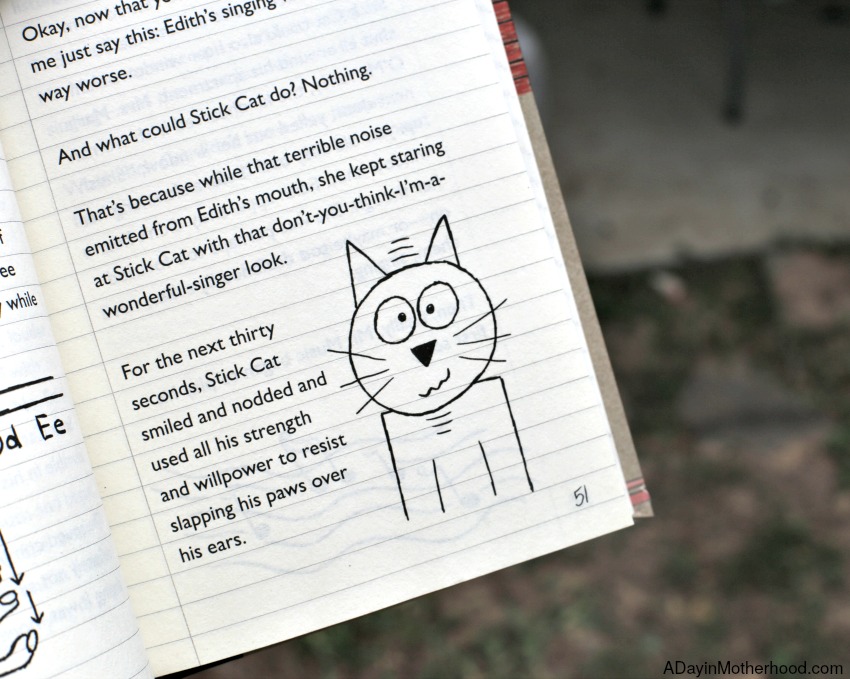 Okay, now that
me just say this: Edith's singing
way worse.
And what could Stick Cat do? Nothing.
That's because while that terrible noise
emitted from Edith's mouth, she kept staring
at Stick Cat with that don't-you-think-I'm-a-
wonderful-singer look.
For the next thirty
seconds, Stick Cat
smiled and nodded and
used all his strength
and willpower to resist
slapping his paws over
his ears.
51
while
Ee
ADayinMotherhood.com